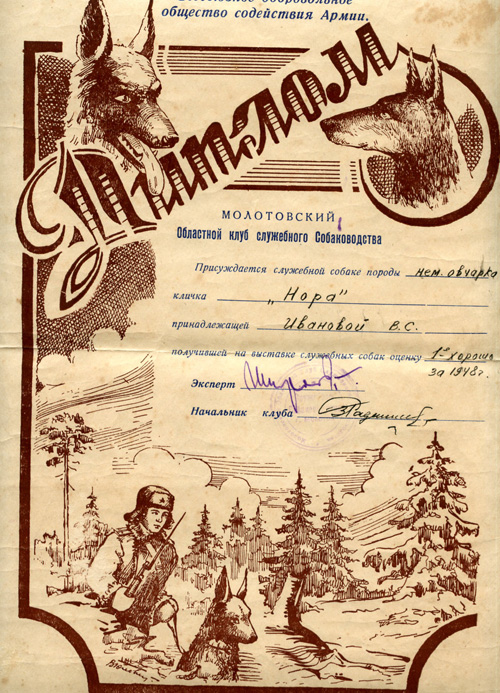 общество содействия Армии.
Диплом
МОЛОТОВСКИЙ
Областной клуб служебного Собаководства
Присуждается служебной собаке породы нем. овчарка
кличка „Нора"
принадлежащей Ивановой В.С.
получившей на выставке служебных собак оценку 1-хорошо
за 1948г.
Эксперт
Начальник клуба